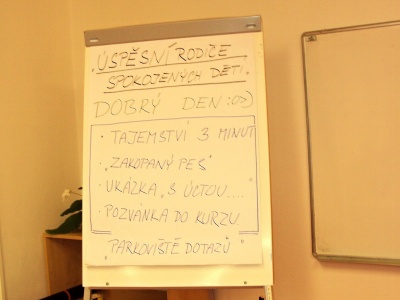 „ÚSPĚSNÍ RODIČE
SPOKOJENÝCH DĚTÍ"
DOBRÝ DEN :o)
· TAJEMSTVÍ 3 MINUT
· „ZAKOPANÝ PES"
· UKÁZKA „S ÚCTOU....
· POZVÁNKA DO KURZU
„PARKOVIŠTĚ DOTAZŮ"